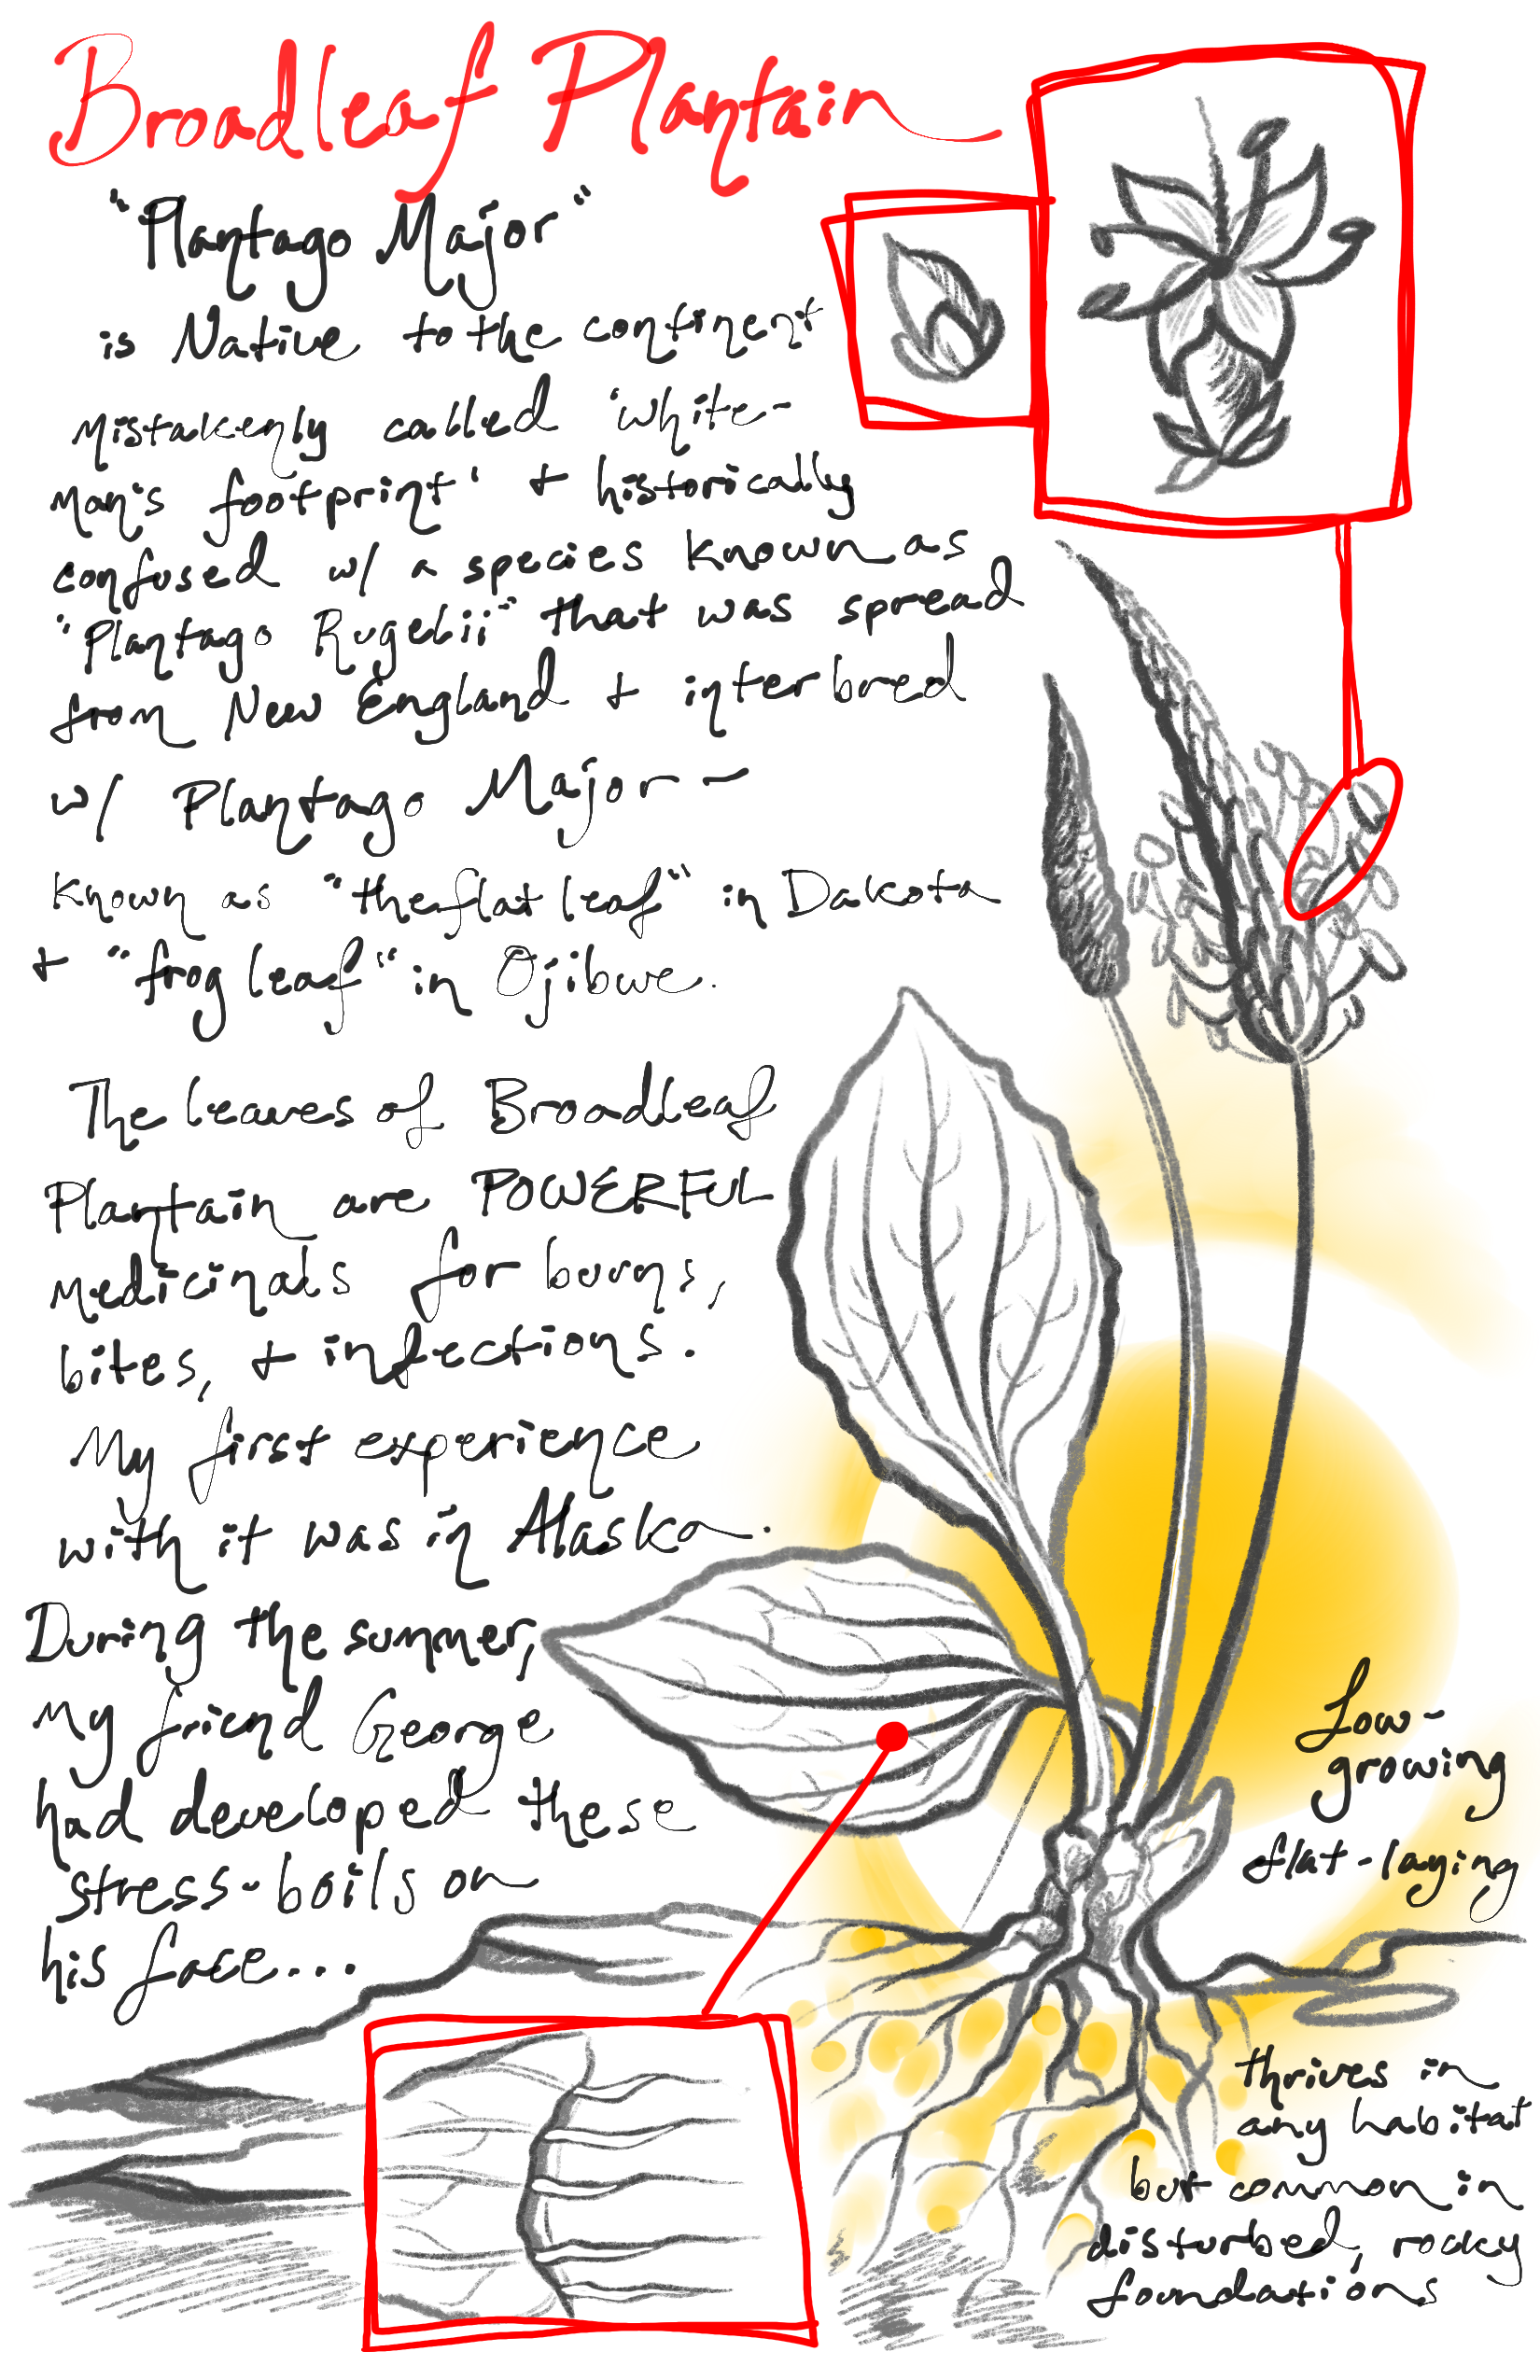 Broadleaf Plantain
"Plantago Major"
is Native to the continent
mistakenly called 'white-
man's footprint' + historically
confused w/ a species known as
"Plantago Rugelii" that was spread
from New England + interbred
w/ Plantago Major —
Known as "the flat leaf" in Dakota
+ "frog leaf" in Ojibwe.
The leaves of Broadleaf
Plantain are POWERFUL
medicinals for burns,
bites, + infections.
My first experience
with it was in Alaska.
During the summer,
my friend George
had developed these
stress-boils on
his face...
Low-
growing
flat-laying
thrives in
any habitat
but common in
disturbed, rocky
foundations